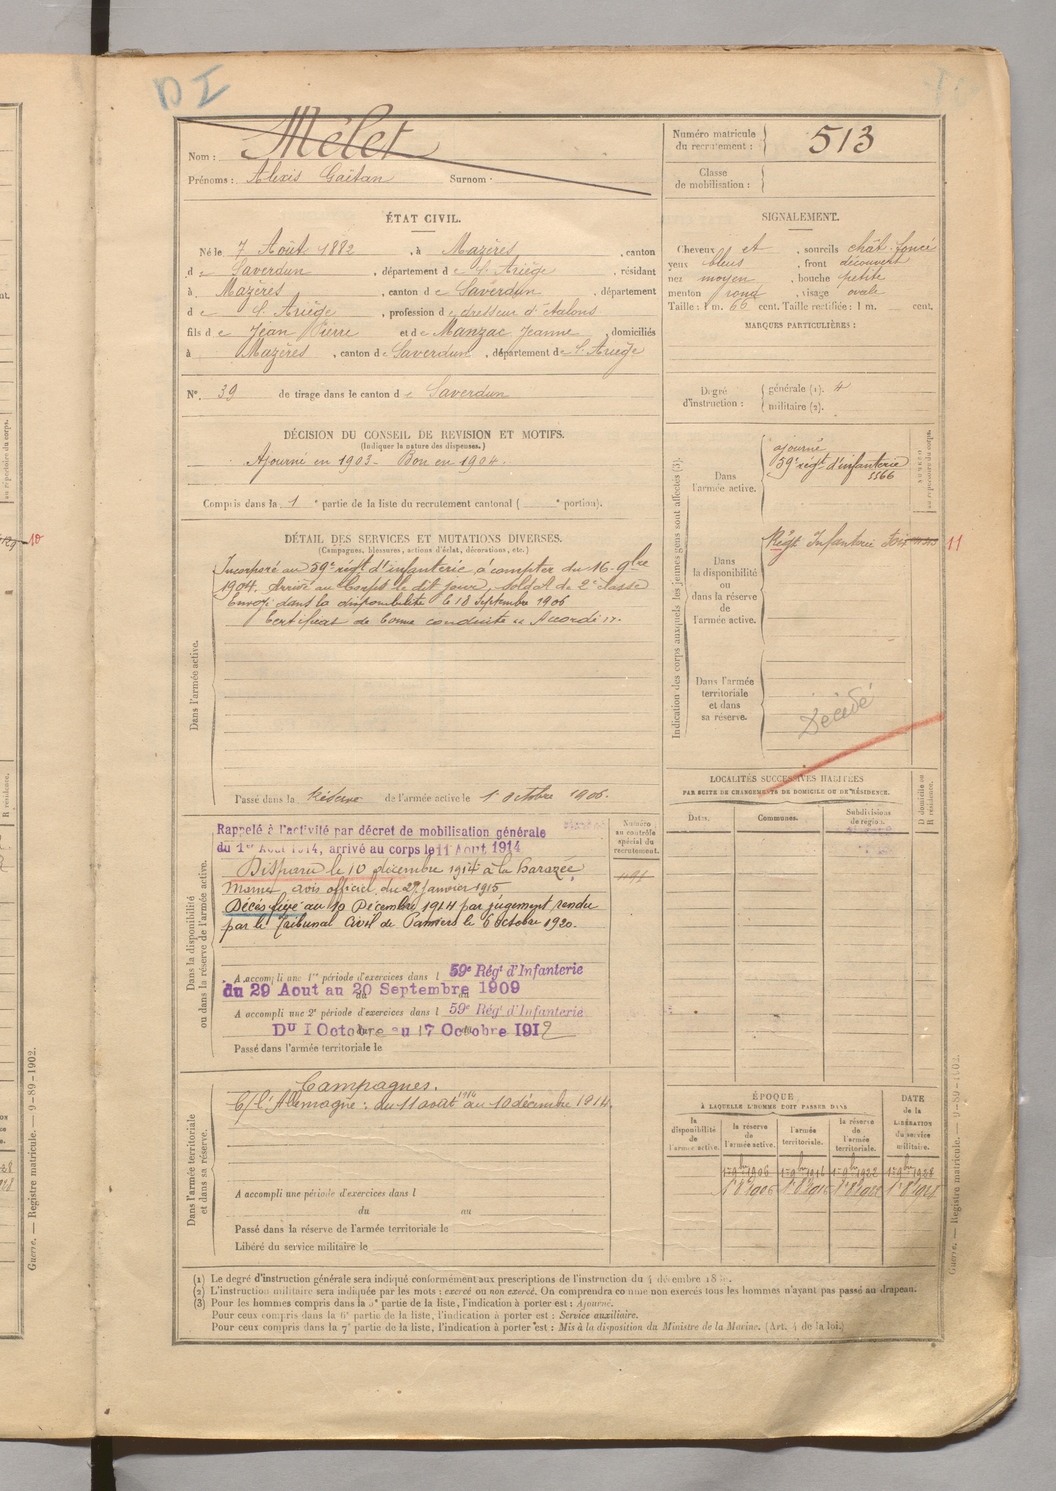 DI
Nom : Mélet
Prénoms : Alexis Gaëtan Surnom :
Numéro matricule
du recrutement : 513
Classe
de mobilisation :
ÉTAT CIVIL.
Né le 7 Août 1882, à Mazères, canton
de Saverdun, département de l'Ariège, résidant
à Mazères, canton de Saverdun, département
de l'Ariège, profession de dresseur d'étalons
fils de Jean Pierre et de Manzac Jeanne, domiciliés
à Mazères, canton de Saverdun, département de l'Ariège
N° 39 de tirage dans le canton de Saverdun
DÉCISION DU CONSEIL DE REVISION ET MOTIFS.
(Indiquer la nature des dispenses.)
Ajourné en 1903 - Bon en 1904.
Compris dans la 1e partie de la liste du recrutement cantonal ( e portion).
SIGNALEMENT.
Cheveux et, sourcils chât. foncé
yeux bleus, front découvert
nez moyen, bouche petite
menton rond, visage ovale
Taille : 1 m. 66 cent. Taille rectifiée : 1 m. cent.
MARQUES PARTICULIÈRES :
Degré
d'instruction :
générale (1).
militaire (2).
DÉTAIL DES SERVICES ET MUTATIONS DIVERSES.
(Campagnes, blessures, actions d'éclat, décorations, etc.)
Dans l'armée active.
Incorporé au 59e régt d'infanterie à compter du 16 9bre
1904. Arrivé au Corps le dit jour, soldat de 2e classe
Envoyé dans la disponibilité le 18 Septembre 1906
Certificat de bonne conduite "Accordé".
Passé dans la Réserve de l'armée active le 1 Octobre 1906.
Indication des corps auxquels les jeunes gens sont affectés (3).
Dans
l'armée active.
ajourné
59e régt d'infanterie
5566
NUMÉRO
au répertoire du corps.
Dans
la disponibilité
ou
dans la réserve
de
l'armée active.
Régt Infanterie Foix
11
Dans l'armée
territoriale
et dans
sa réserve.
Décédé
LOCALITÉS SUCCESSIVES HABITÉES
PAR SUITE DE CHANGEMENTS DE DOMICILE OU DE RÉSIDENCE.
Dates.
Communes.
Subdivisions
de région.
D domicile ou
R résidence.
Dans la disponibilité
ou dans la réserve de l'armée active.
Rappelé à l'activité par décret de mobilisation générale
du 1er Août 1914, arrivé au corps le 11 Août 1914
Disparu le 10 décembre 1914 à la Harazée
Marne, avis officiel du 29 Janvier 1915
Décès fixé au 10 Décembre 1914 par jugement rendu
par le Tribunal Civil de Pamiers le 6 Octobre 1920.
Numéro
au contrôle
spécial du
recrutement.
A accompli une 1re période d'exercices dans l 59e Régt d'Infanterie
du 29 Aout au 20 Septembre 1909
A accompli une 2e période d'exercices dans l 59e Régt d'Infanterie
Du 1 Octobre au 17 Octobre 1912
Passé dans l'armée territoriale le
Dans l'armée territoriale
et dans sa réserve.
Campagnes.
C/ l'Allemagne : du 11 août 1914 au 10 décembre 1914.
A accompli une période d'exercices dans l
du au
Passé dans la réserve de l'armée territoriale le
Libéré du service militaire le
ÉPOQUE
À LAQUELLE L'HOMME DOIT PASSER DANS
la
disponibilité
de
l'armée active.
la réserve
de
l'armée active.
l'armée
territoriale.
la réserve
de
l'armée
territoriale.
DATE
de la
LIBÉRATION
du service
militaire.
(1) Le degré d'instruction générale sera indiqué conformément aux prescriptions de l'instruction du 4 décembre
(2) L'instruction militaire sera indiquée par les mots : exercé ou non exercé. On comprendra comme non exercés tous les hommes n'ayant pas passé au drapeau.
(3) Pour les hommes compris dans la 5e partie de la liste, l'indication à porter est : Ajourné.
Pour ceux compris dans la 6e partie de la liste, l'indication à porter est : Service auxiliaire.
Pour ceux compris dans la 7e partie de la liste, l'indication à porter est : Mis à la disposition du Ministre de la Marine. (Art. 4 de la loi.)
Guerre. — Registre matricule. — 9-89-1902.